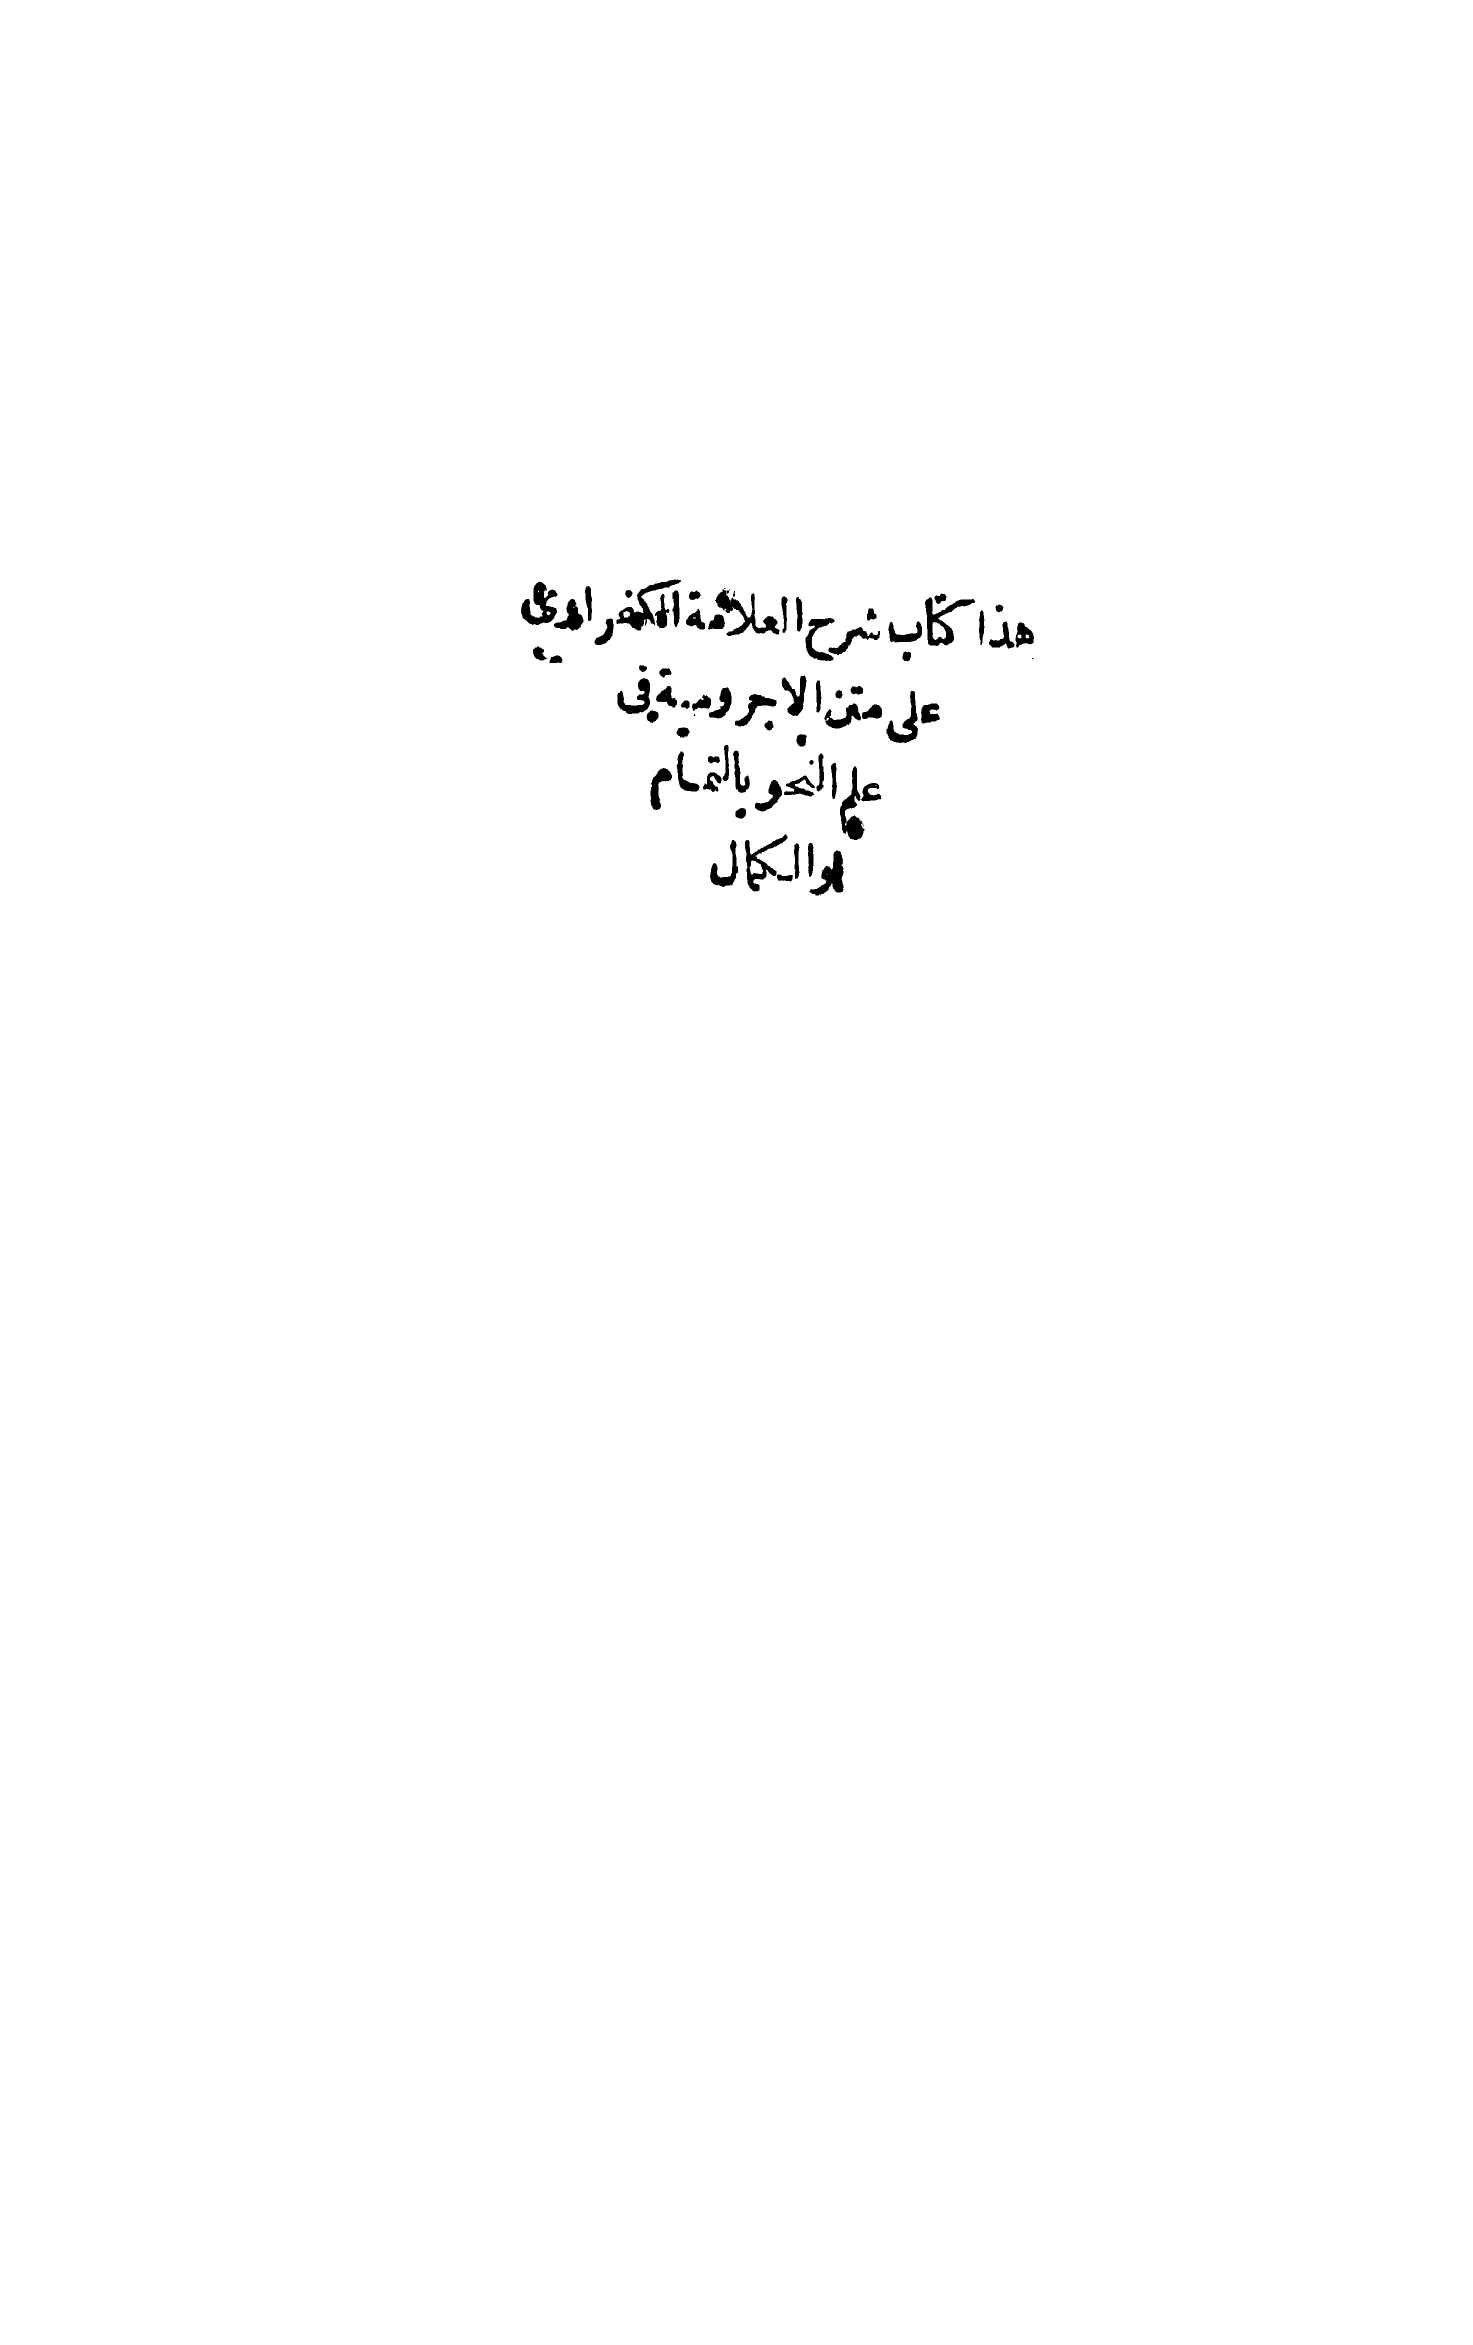 هذا كتاب شرح العلامة الكفراوي
على متن الاجرومية في
علم النحو بالتمام
والكمال